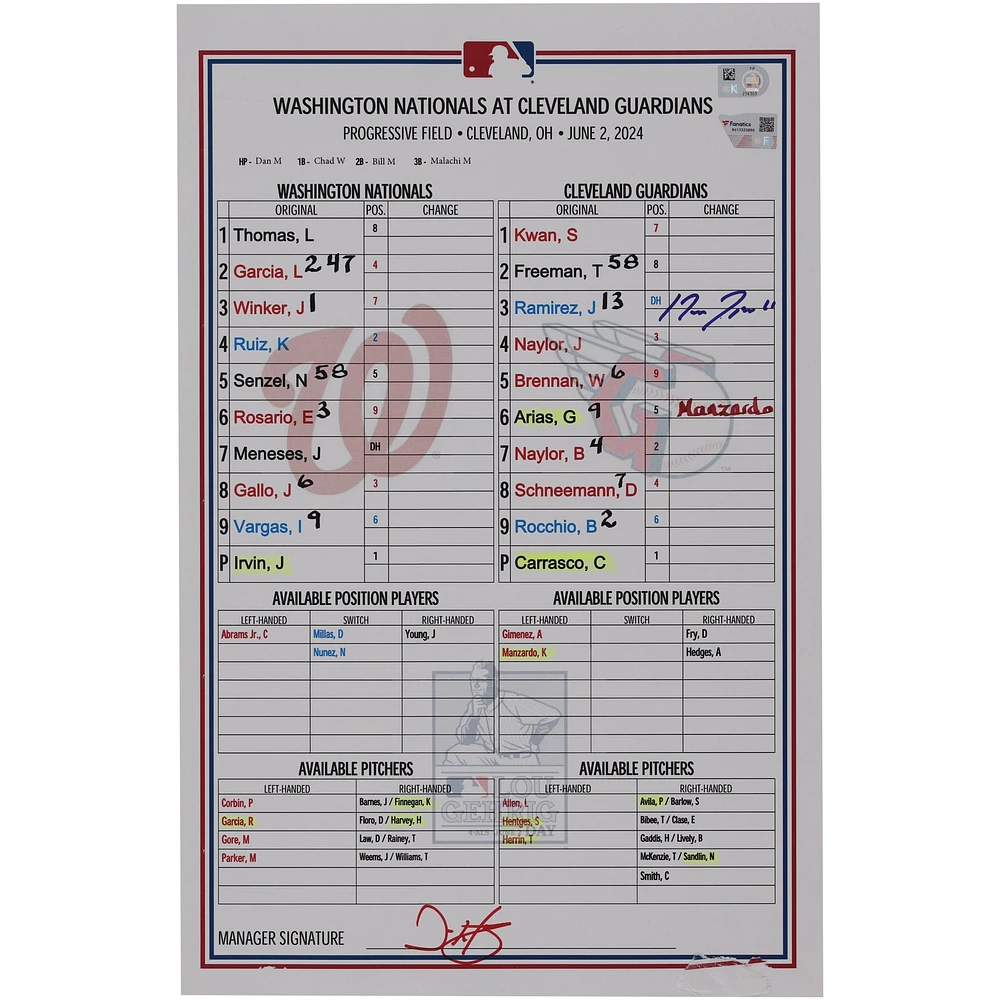 WASHINGTON NATIONALS AT CLEVELAND GUARDIANS
PROGRESSIVE FIELD • CLEVELAND, OH • JUNE 2, 2024
HP - Dan M 1B - Chad W 2B - Bill M 3B - Malachi M
Fanatics
WASHINGTON NATIONALS
ORIGINAL POS. CHANGE
1 Thomas, L 8
2 Garcia, L 247 4
3 Winker, J 1 7
4 Ruiz, K 2
5 Senzel, N 58 5
6 Rosario, E 3 9
7 Meneses, J DH
8 Gallo, J 6 3
9 Vargas, I 9 6
P Irvin, J 1
CLEVELAND GUARDIANS
ORIGINAL POS. CHANGE
1 Kwan, S 7
2 Freeman, T 58 8
3 Ramirez, J 13 DH
4 Naylor, J 3
5 Brennan, W 6 9
6 Arias, G 9 5 Manzardo
7 Naylor, B 4 2
8 Schneemann, D 7 4
9 Rocchio, B 2 6
P Carrasco, C 1
AVAILABLE POSITION PLAYERS
LEFT-HANDED SWITCH RIGHT-HANDED
Abrams Jr., C Millas, D Young, J
Nunez, N
AVAILABLE POSITION PLAYERS
LEFT-HANDED SWITCH RIGHT-HANDED
Gimenez, A Fry, D
Manzardo, K Hedges, A
AVAILABLE PITCHERS
LEFT-HANDED RIGHT-HANDED
Corbin, P Barnes, J / Finnegan, K
Garcia, R Floro, D / Harvey, H
Gore, M Law, D / Rainey, T
Parker, M Weems, J / Williams, T
AVAILABLE PITCHERS
LEFT-HANDED RIGHT-HANDED
Allen, L Avila, P / Barlow, S
Hentges, S Bibee, T / Clase, E
Herrin, T Gaddis, H / Lively, B
McKenzie, T / Sandlin, N
Smith, C
LOU
GEHRIG
DAY
MANAGER SIGNATURE